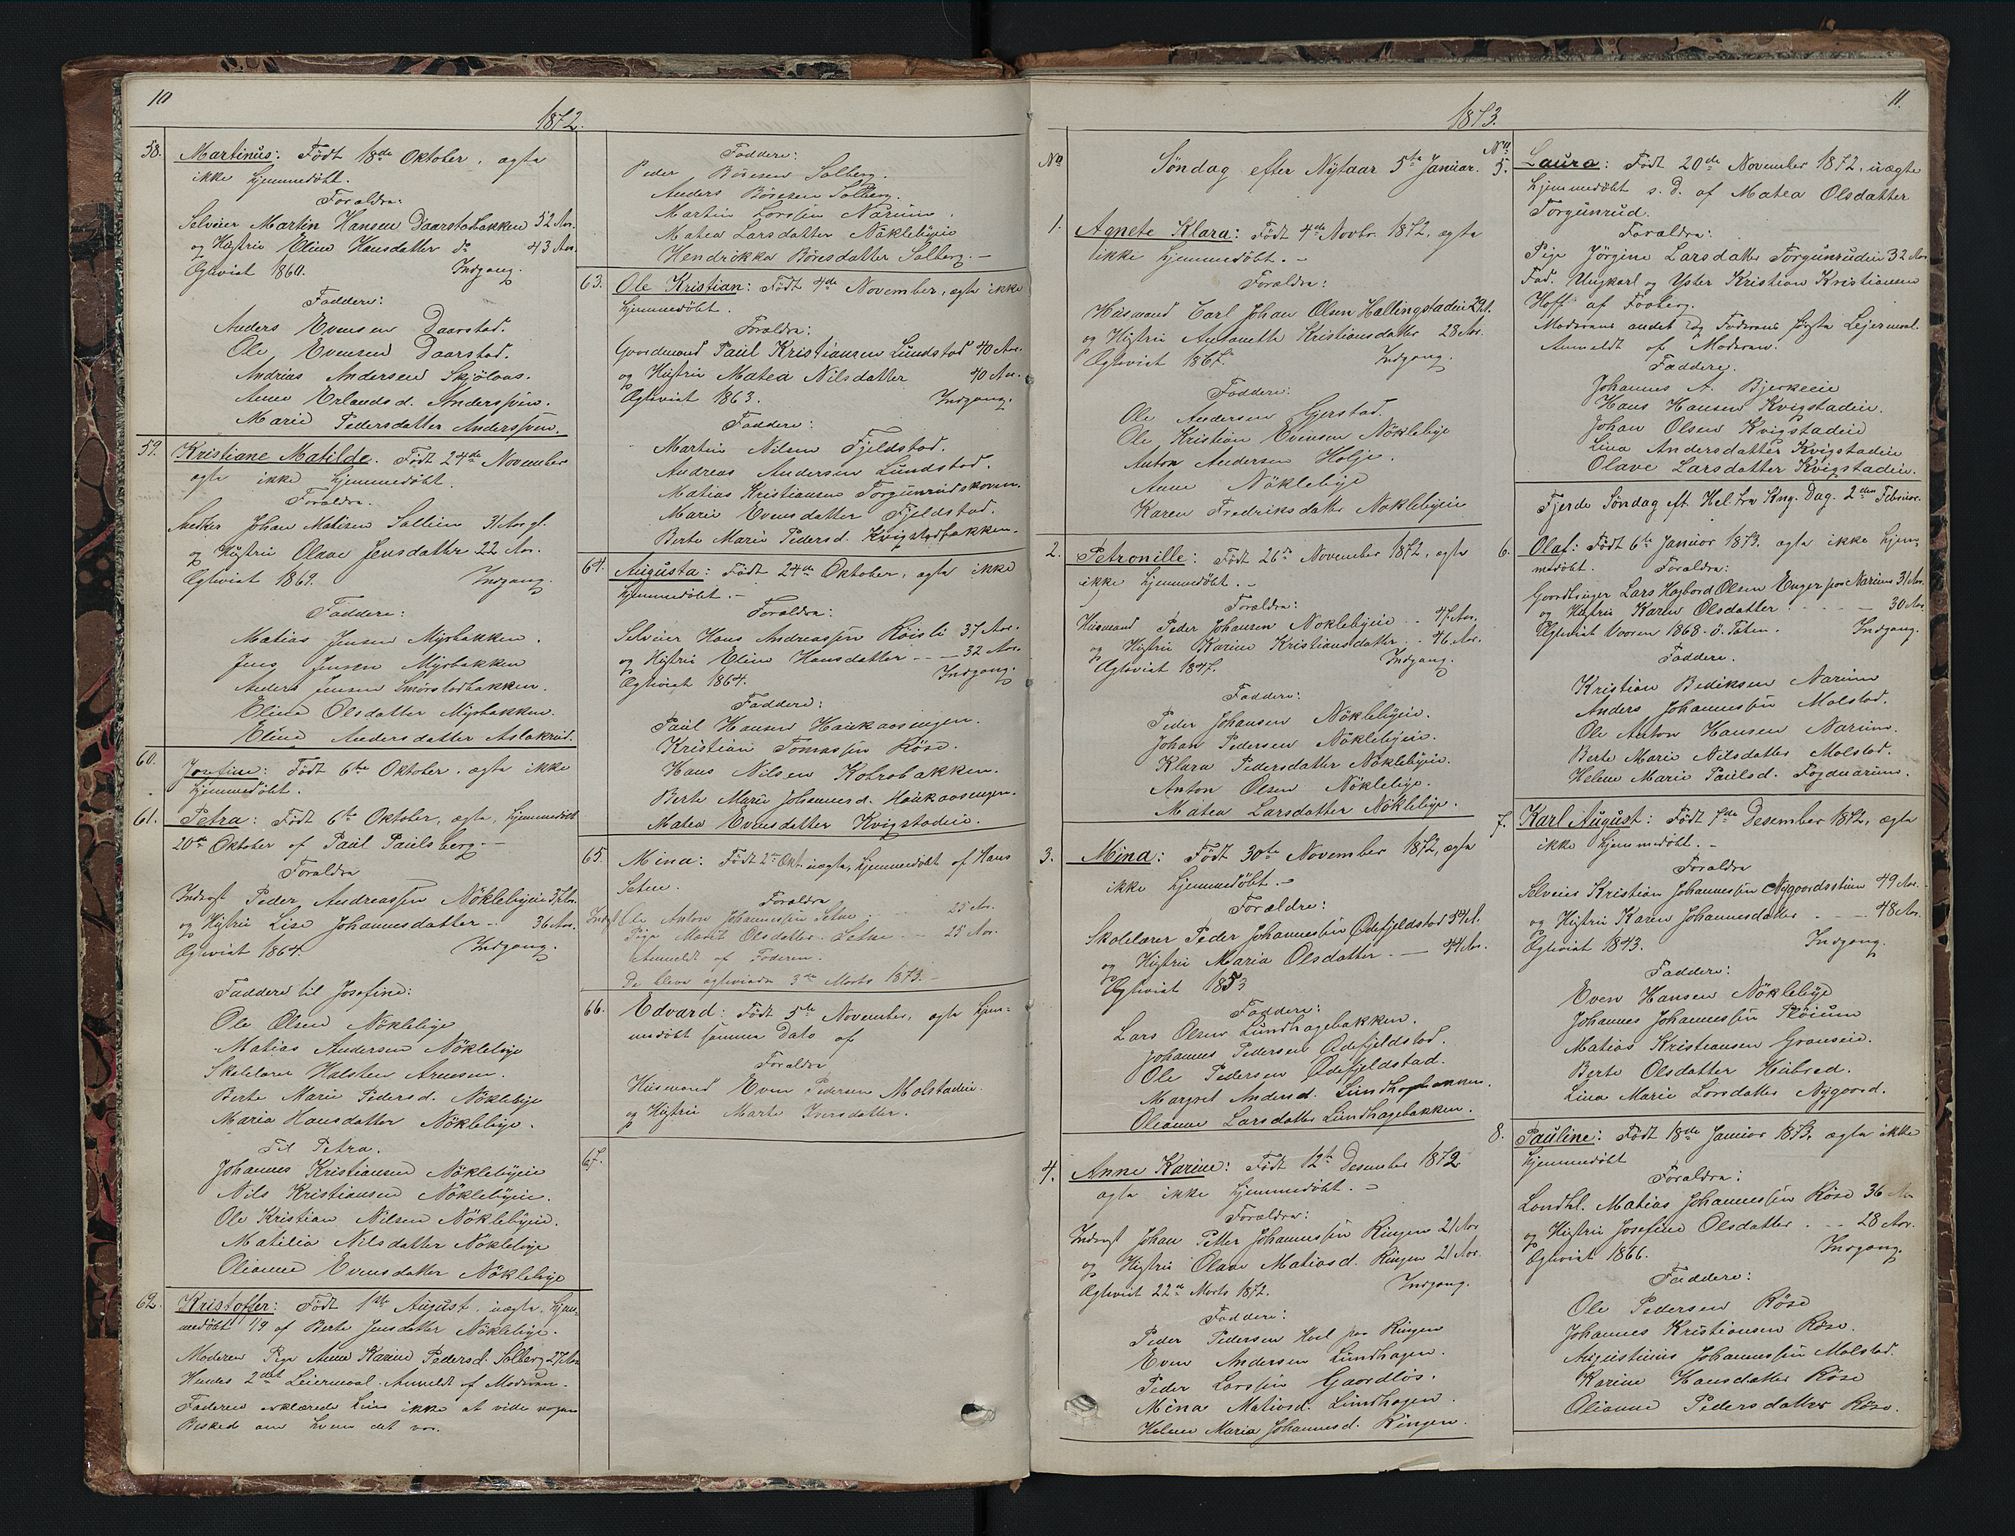 10
1872.
58. Martinus: Født 18de Oktober, ægte
ikke hjemmedøbt.
Foraldre:
Selveier Martin Hansen Daarstabakken 52 Aar.
og Hustru Eline Hansdatter do 43 Aar.
Ægteviet 1860. Indgang.
Faddere:
Anders Evensen Daarstad.
Ole Evensen Daarstad.
Andrias Andersen Skjølaas.
Anne Erlandsd. Anderssven.
Marie Pedersdatter Anderssven.
59. Kristiane Matilde. Født 24de November
ægte ikke hjemmedøbt.
Foraldre:
Johan Matisen Sollien 31 Aar gl.
og Hustru Olave Jensdatter 22 Aar.
Ægteviet 1869. Indgang.
Faddere:
Matias Jensen Myrbakken.
Jens Jensen Myrbakken
Anders Jensen Smørstadbakken.
Eline Olsdatter Myrbakken.
Eline Andersdatter Aslakrud.
60. Josefine: Født 6te Oktober, ægte ikke
hjemmedøbt.
61. Petra: Født 6te Oktober, ægte, hjemmedøbt
20de Oktober af Paul Paulsberg.
Foraldre
Inderst Peder Andreassen Nøklebyeie 37 Aar.
og Hustru Lise Johannesdatter 36 Aar.
Ægteviet 1864. Indgang.
Faddere til Josefine:
Ole Olsen Nøklebye
Matias Andersen Nøklebye
Skolelærer Halsten Arnesen.
Berte Marie Pedersd. Nøklebye
Maria Hansdatter Nøklebye.
Til Petra.
Johannes Kristiansen Nøklebyeie
Nils Kristiansen Nøklebyeie.
Ole Kristian Nilsen Nøklebyeie.
Matilia Nilsdatter Nøklebye
Oleanne Evensdatter Nøklebye
62. Kristoffer: Født 1ste August, uægte, hjem-
medøbt 1/9 af Berte Jensdatter Nøklebye.
Moderen Pige Anne Karine Pedersd. Solberg 27 Aar
Hendes 2det Leiermaal. Anmeldt af Moderen.
Faderen erklærede hun ikke at vide nogen
Besked om hvem det var.
Faddere:
Peder Børesen Solberg.
Anders Børesen Solberg.
Martin Larsen Narum.
Matea Larsdatter Nøklebyeie
Hendrikka Børesdatter Solberg.
63. Ole Kristian: Født 4de November, ægte ikke
hjemmedøbt.
Foraldre:
Gaardmand Paul Kristiansen Lundstad 40 Aar.
og Hustru Matea Nilsdatter 40 Aar.
Ægteviet 1863. Indgang.
Faddere:
Martin Nilsen Fjeldstad.
Andreas Andersen Lundstad.
Matias Kristiansen Torgunrudskoven.
Marie Evensdatter Fjeldstad.
Berte Marie Pedersd. Kvigstadbakken.
64. Augusta: Født 24de Oktober, ægte ikke
hjemmedøbt.
Foraldre:
Selveier Hans Andreassen Røisli 37 Aar.
og Hustru Eline Hansdatter 32 Aar.
Ægteviet 1864. Indgang.
Faddere:
Paul Hansen Haukaasengen.
Kristian Tomassen Røse.
Hans Nilsen Kolrobakken.
Berte Marie Johannesd. Haukaasengen.
Matea Evensdatter Kvigstadeie.
65. Mina: Født 2de Okt. uægte, hjemmedøbt af Hans
Setne.
Foraldre
Inderst Ole Anton Johannessen Setne 25 Aar.
Pige Marit Olsdatter Setne 25 Aar.
Anmeldt af Faderen.
De bleve ægteviede 3die Marts 1873.
66. Edvard: Født 5te November, ægte hjem-
medøbt samme Dato af
Foraldre
Husmand Even Pedersen Molstadeie.
og Hustru Marte Iversdatter.
67.
11.
1873.
No Søndag efter Nytaar 5te Januar. No
1. Agnete Klara: Født 4de Novbr. 1872, ægte
ikke hjemmedøbt.
Foraldre:
Husmand Carl Johan Olsen Hallingstadeie
og Hustru Antonette Kristiansdatter 28 Aar.
Ægteviet 1867. Indgang.
Faddere:
Ole Andersen Gjerstad.
Ole Kristian Evensen Nøklebye
Anton Andersen Holje.
Anne Nøklebye
Karen Fredriksdatter Nøklebyeie
2. Petronille: Født 26de November 1872, ægte
ikke hjemmedøbt.
Foraldre:
Husmand Peder Johansen Nøklebyeie 47 Aar.
og Hustru Karine Kristiansdatter 46 Aar.
Ægteviet 1847. Indgang.
Faddere:
Peder Johansen Nøklebyeie.
Johan Pedersen Nøklebyeie.
Klara Pedersdatter Nøklebyeie.
Anton Olsen Nøklebye.
Matea Larsdatter Nøklebye.
3. Mina: Født 30te November 1872, ægte
ikke hjemmedøbt.
Forældre:
Skolelærer Peder Johannessen Ødefjeldstad
og Hustru Maria Olsdatter 44 Aar.
Ægteviet 1853
Faddere:
Lars Olsen Lundhagebakken.
Johannes Pedersen Ødefjeldstad.
Ole Pedersen Ødefjeldstad.
Margret Andersd.
Oleanne Larsdatter Lundhagebakken.
4. Anne Karine: Født 12te Desember 1872
ægte ikke hjemmedøbt.
Forældre:
Inderst Johan Petter Johannessen Ringen 21 Aar
og Hustru Olave Matiasd. Ringen 21 Aar.
Ægteviet 22de Marts 1872. Indgang.
Faddere:
Peder Pedersen Hvel paa Ringen
Even Andersen Lundhagen.
Peder Larssen Gaardløs.
Mina Matiasd. Lundhagen.
Helene Maria Johannesd. Ringen.
5. Laura: Født 20de November 1872, uægte
hjemmedøbt s. D. af Matea Olsdatter
Torgunrud.
Foraldre:
Pige Jørgine Larsdatter Torgunrudeie 32 Aar.
Fad. Ungkarl og Kristian Kristiansen
Hoff af Faaberg.
Moderens andet og Faderens første Leiermaal.
Anmeldt af Moderen.
Faddere:
Johannes A. Bjerkeeie
Hans Hansen Kvigstadeie.
Johan Olsen Kvigstadeie
Lina Andersdatter Kvigstadeie
Olave Larsdatter Kvigstadeie.
Fjerde Søndag eft. Hel. tre Kng. Dag. 2den Februar.
6. Olaf: Født 6te Januar 1873, ægte ikke hjem-
medøbt. Foraldre:
Gaardbruger Lars Hagbard Olsen Enger paa Narum 31 Aar.
og Hustru Karen Olsdatter 30 Aar.
Ægteviet Vaaren 1868 ø. Toten. Indgang.
Faddere.
Kristian Narum
Anders Johannessen Molstad.
Ole Anton Hansen Narum.
Berte Marie Nilsdatter Molstad.
Helene Marie Paulsd. Fogdnarum.
7. Karl August: Født 7de Desember 1872, ægte
ikke hjemmedøbt.
Foraldre
Selveier Kristian Johannessen Nygaardsstuen 49 Aar.
og Hustru Karen Johannesdatter 48 Aar.
Ægteviet 1843. Indgang.
Faddere:
Even Hansen Nøklebye
Johannes Johannessen Fløium
Matias Kristiansen Granseie.
Berte Olsdatter
Lina Marie Larsdatter Nygaard.
8. Pauline: Født 18de Januar 1873, ægte ikke
hjemmedøbt
Foraldre:
Landhl. Matias Johannessen Røse 36 Aar
og Hustru Josefine Olsdatter 28 Aar.
Ægteviet 1866. Indgang.
Faddere:
Ole Pedersen Røse
Johannes Kristiansen Røse.
Augustinus Johannessen Molstad.
Karine Hansdatter Røse
Oleanne Pedersdatter Røse.